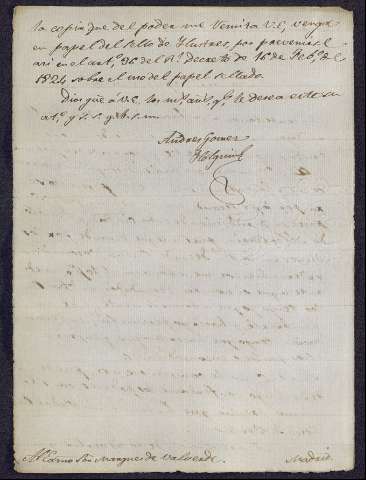 la copia que del poder me remita V.E. venga
en papel del sello de Ilustres por prevenirse
asi en el art.º 36 del R.l decreto de 16 de Feb.º de
1824 sobre el uso del papel sellado.
Dios gue á V.E. los m.s a.s q.e le desea este su
at.º q. s. s. q. b. s. m.
Andres Gomez
Holguin
Marques de Valverde.
Madrid.